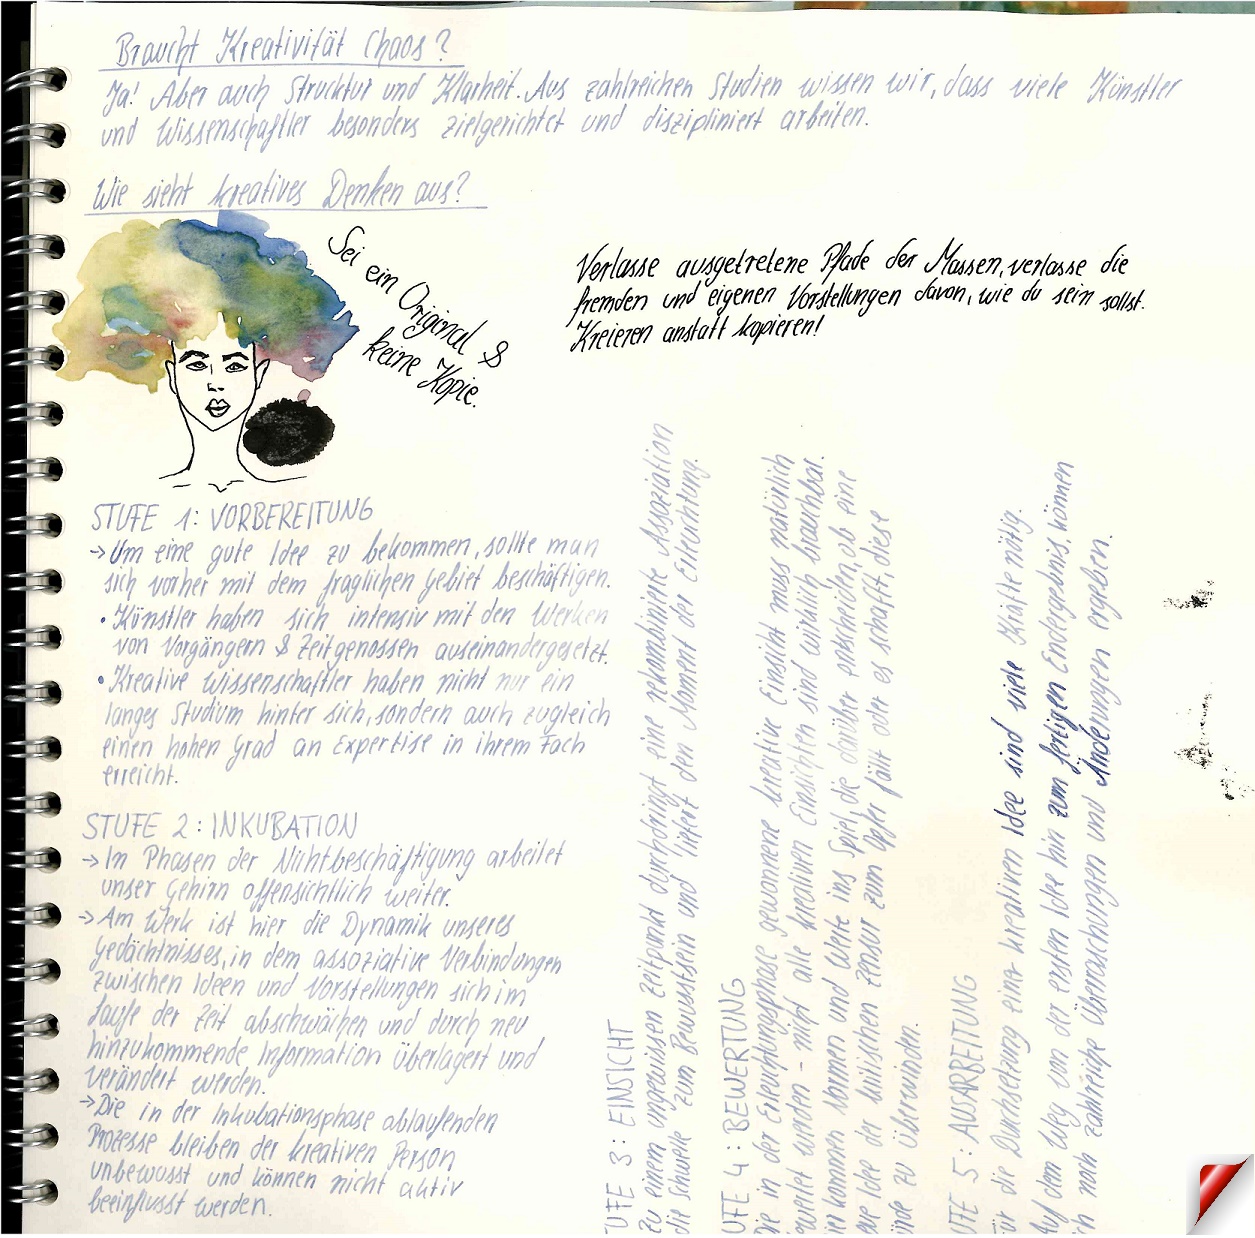 Braucht Kreativität Chaos?
Ja! Aber auch Struktur und Klarheit. Aus zahlreichen Studien wissen wir, dass viele Künstler
und Wissenschaftler besonders zielgerichtet und diszipliniert arbeiten.
Wie sieht kreatives Denken aus?
Sei ein Original &
keine Kopie.
Verlasse ausgetretene Pfade der Massen, verlasse die
fremden und eigenen Vorstellungen davon, wie du sein sollst.
Kreieren anstatt kopieren!
STUFE 1: VORBEREITUNG
→ Um eine gute Idee zu bekommen, sollte man
sich vorher mit dem fraglichen Gebiet beschäftigen.
• Künstler haben sich intensiv mit den Werken
von Vorgängern & Zeitgenossen auseinandergesetzt.
• Kreative Wissenschaftler haben nicht nur ein
langes Studium hinter sich, sondern auch zugleich
einen hohen Grad an Expertise in ihrem Fach
erreicht.
STUFE 2: INKUBATION
→ In Phasen der Nichtbeschäftigung arbeitet
unser Gehirn offensichtlich weiter.
→ Am Werk ist hier die Dynamik unseres
Gedächtnisses, in dem assoziative Verbindungen
zwischen Ideen und Vorstellungen sich im
Laufe der Zeit abschwächen und durch neu
hinzukommende Information überlagert und
verändert werden.
→ Die in der Inkubationsphase ablaufenden
Prozesse bleiben der kreativen Person
unbewusst und können nicht aktiv
beeinflusst werden.
TUFE 3: EINSICHT
Zu einem ungewissen Zeitpunkt durchdringt eine rekombinierte Assoziation
die Schwelle zum Bewusstsein und liefert den Moment der Erleuchtung.
UFE 4: BEWERTUNG
Die in der Erleuchtungsphase gewonnene kreative Einsicht muss natürlich
werden - nicht alle kreativen Einsichten sind wirklich brauchbar.
kommen Normen und Werte ins Spiel, die darüber entscheiden, ob eine
Idee der kritischen Zensur zum Opfer fällt oder es schafft, diese
zu überwinden.
UFE 5: AUSARBEITUNG
ür die Durchsetzung einer kreativen Idee sind viele Kräfte nötig.
Auf dem Weg von der ersten Idee hin zum fertigen Endergebnis, können
ich noch zahlreiche Überraschungen und Änderungen ergeben.